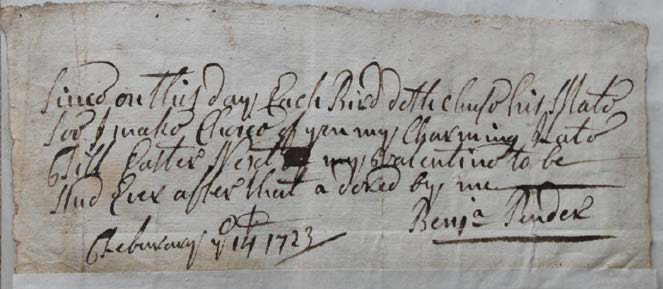 Since on this day Each Bird doth chuse his Mate
Soo I make Choice of you my Charming Kate
Till Easter Next my Valentine to be
And Ever after that a dored by me
Benja Pender
February ye 14 1723